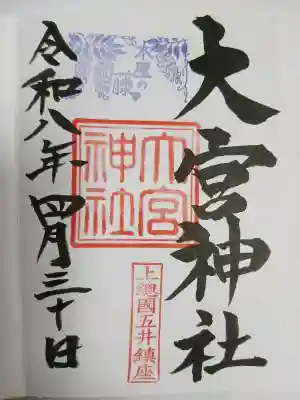 大宮神社
大宮
神社
上總國五井鎮座
令和八年四月三十日